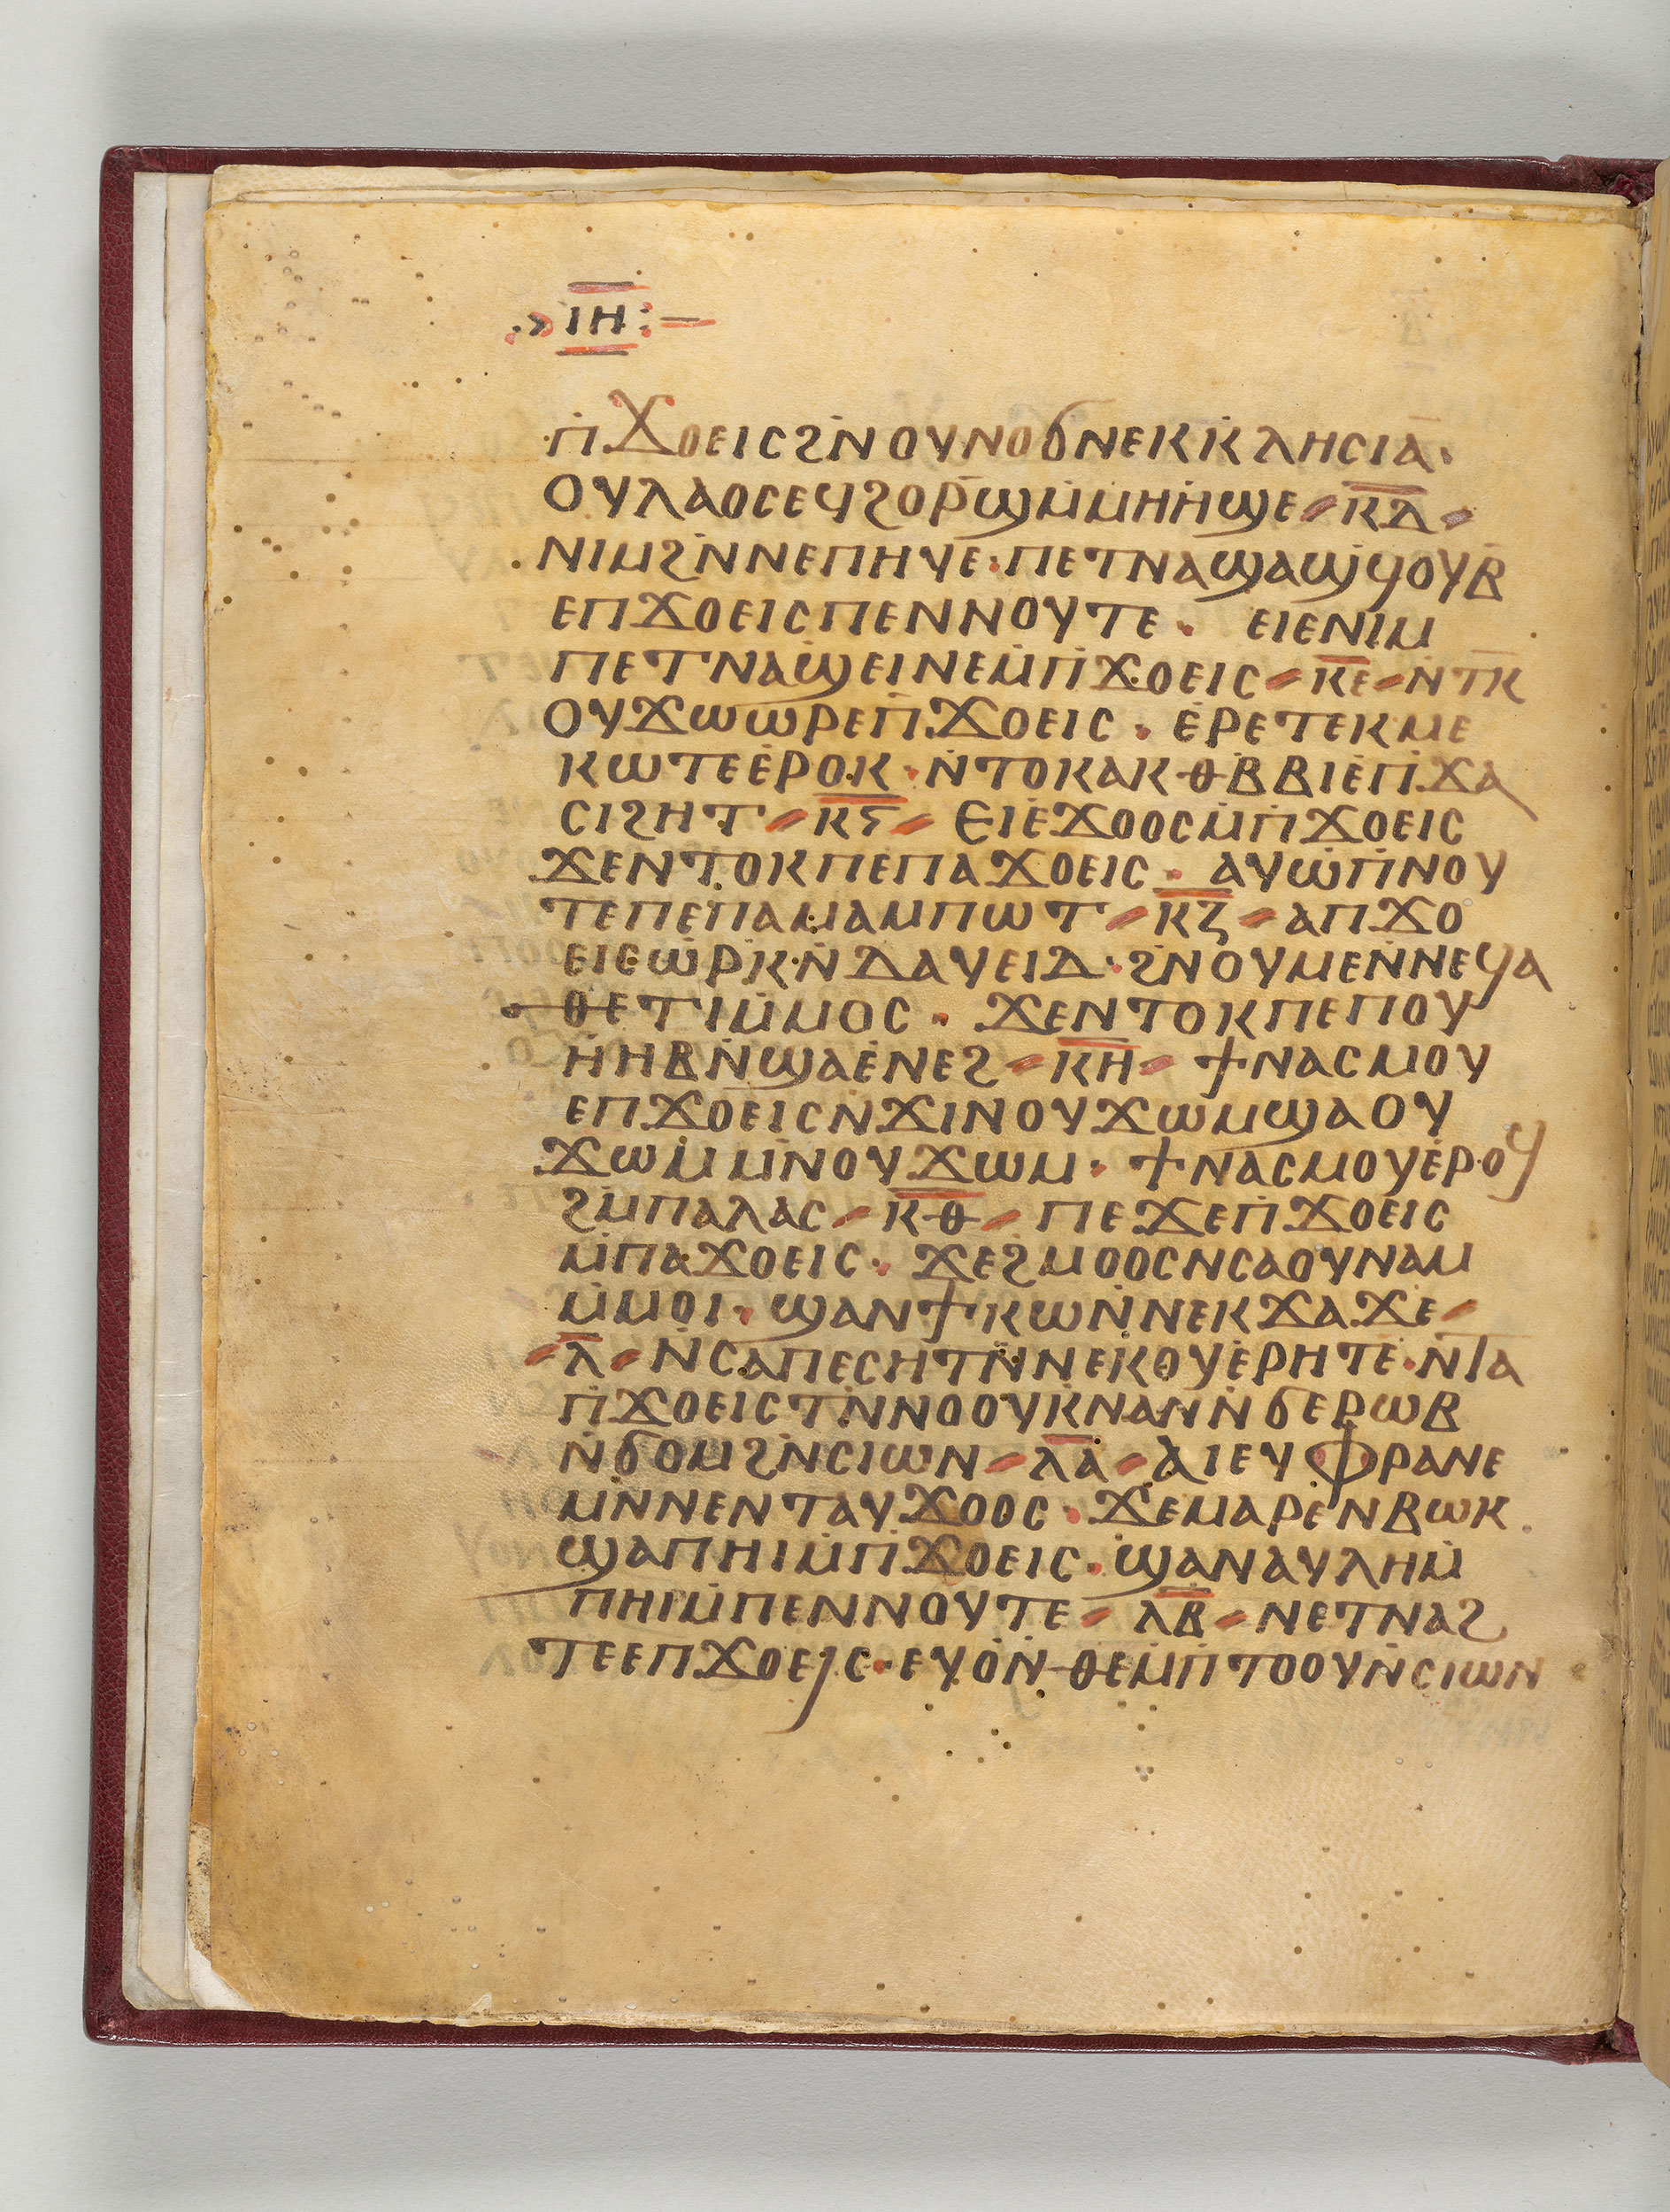 ·> ⲓⲏ :–
ⲡϫⲟⲉⲓⲥϩⲛⲟⲩⲛⲟϭⲛⲉⲕⲕⲗⲏⲥⲓⲁ·
ⲟⲩⲗⲁⲟⲥⲉϥϩⲟⲣϣⲙⲙⲏⲏϣⲉ⸗ⲕⲇ⸗
ⲛⲓⲙϩⲛⲛⲉⲡⲏⲩⲉ·ⲡⲉⲧⲛⲁϣⲁϣϥⲟⲩⲃ
ⲉⲡϫⲟⲉⲓⲥⲡⲉⲛⲛⲟⲩⲧⲉ· ⲉⲓⲉⲛⲓⲙ
ⲡⲉⲧⲛⲁϣⲉⲓⲛⲉⲙⲡϫⲟⲉⲓⲥ⸗ⲕⲉ⸗ⲛⲧⲕ
ⲟⲩϫⲱⲱⲣⲉⲡϫⲟⲉⲓⲥ· ⲉⲣⲉⲧⲉⲕⲙⲉ
ⲕⲱⲧⲉⲉⲣⲟⲕ·ⲛⲧⲟⲕⲁⲕⲑⲃⲃⲓⲉⲡϫⲁ
ⲥⲓϩⲏⲧ⸗ⲕⲋ⸗ ⲉⲓⲉϫⲟⲟⲥⲙⲡϫⲟⲉⲓⲥ
ϫⲉⲛⲧⲟⲕⲡⲉⲡⲁϫⲟⲉⲓⲥ· ⲁⲩⲱⲡⲛⲟⲩ
ⲧⲉⲡⲉⲡⲁⲙⲁⲙⲡⲱⲧ⸗ⲕⲍ⸗ⲁⲡϫⲟ
ⲉⲓⲥⲱⲣⲕⲛⲇⲁⲩⲉⲓⲇ·ϩⲛⲟⲩⲙⲉⲛⲛⲉϥⲁ
ⲑⲉⲧⲓⲙⲙⲟⲥ· ϫⲉⲛⲧⲟⲕⲡⲉⲡⲟⲩ
ⲏⲏⲃⲛϣⲁⲉⲛⲉϩ⸗ⲕⲏ⸗ ϯⲛⲁⲥⲙⲟⲩ
ⲉⲡϫⲟⲉⲓⲥⲛϫⲓⲛⲟⲩϫⲱⲙϣⲁⲟⲩ
ϫⲱⲙⲙⲛⲟⲩϫⲱⲙ· ϯⲛⲁⲥⲙⲟⲩⲉⲣⲟϥ
ϩⲙⲡⲁⲗⲁⲥ⸗ⲕⲑ⸗ ⲡⲉϫⲉⲡϫⲟⲉⲓⲥ
ⲙⲡⲁϫⲟⲉⲓⲥ· ϫⲉϩⲙⲟⲟⲥⲛⲥⲁⲟⲩⲛⲁⲙ
ⲙⲙⲟⲓ·ϣⲁⲛϯⲕⲱⲛⲛⲉⲕϫⲁϫⲉ⸗
⸗ⲗ⸗ⲛⲥⲁⲡⲉⲥⲏⲧⲛⲛⲉⲕⲟⲩⲉⲣⲏⲧⲉ·ⲛⲧⲁ
ⲡϫⲟⲉⲓⲥⲧⲛⲛⲟⲟⲩⲕⲛⲁⲛⲛϭⲉⲣⲱⲃ
ⲛϭⲟⲙϩⲛⲥⲓⲱⲛ⸗ⲗⲁ⸗ⲁⲓⲉⲩⲫⲣⲁⲛⲉ
ⲙⲛⲛⲉⲛⲧⲁⲩϫⲟⲟⲥ·ϫⲉⲙⲁⲣⲉⲛⲃⲱⲕ
ϣⲁⲡⲏⲓⲙⲡϫⲟⲉⲓⲥ·ϣⲁⲛⲁⲩⲗⲏⲙ
ⲡⲏⲓⲙⲡⲉⲛⲛⲟⲩⲧⲉ⸗ⲗⲃ⸗ⲛⲉⲧⲛⲁϩ
ⲧⲉⲉⲡϫⲟⲉⲓⲥ·ⲉⲩⲟⲛⲑⲉⲙⲡⲧⲟⲟⲩⲛⲥⲓⲱⲛ